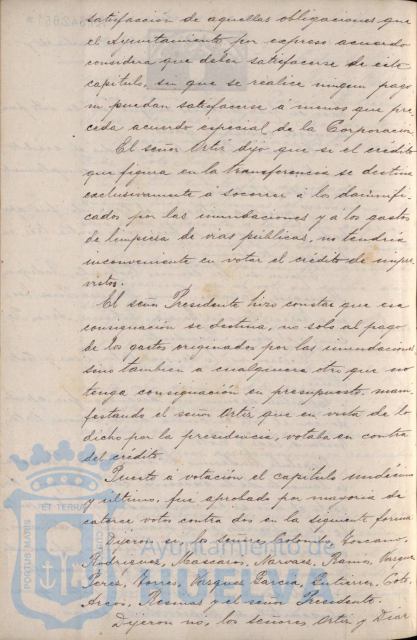 satisfacción de aquellas obligaciones que
el Ayuntamiento por expreso acuerdo
considera que deben satisfacerse de este
capítulo, sin que se realice ningun pago
ni puedan satisfacerse á menos que pre-
ceda acuerdo especial de la Corporación
El señor Ortiz dijo que si el crédito
que figura en la transferencia se destina
exclusivamente á socorrer á los damnifi-
cados por las inundaciones y a los gastos
de limpieza de vias públicas, no tendría
inconveniente en votar el crédito de impre-
vistos.
El señor Presidente hizo constar que esa
consignación se destina, no solo al pago
de los gastos originados por las inundaciones
sino tambien a cualquiera otro que no
tenga consignación en presupuesto, mani-
festando el señor Ortiz que en vista de lo
dicho por la presidencia, votaba en contra
del crédito.
Puesto a votación el capítulo undécimo
y último, fué aprobado por mayoria de
catorce votos contra dos en la siguiente forma
Dijeron si, los señores Colombo, Toscano,
Rodriguez, Mascaros, Narvaez, Ramos, Vazquez
Perez, Torres, Vazquez Garcia, Gutierrez, Coto,
Arcos, y el señor Presidente.
Dijeron no, los señores Ortiz y Diaz
ET TERRÆ
PORTUS MARIS
CUSTODIA
Ayuntamiento de
HUELVA